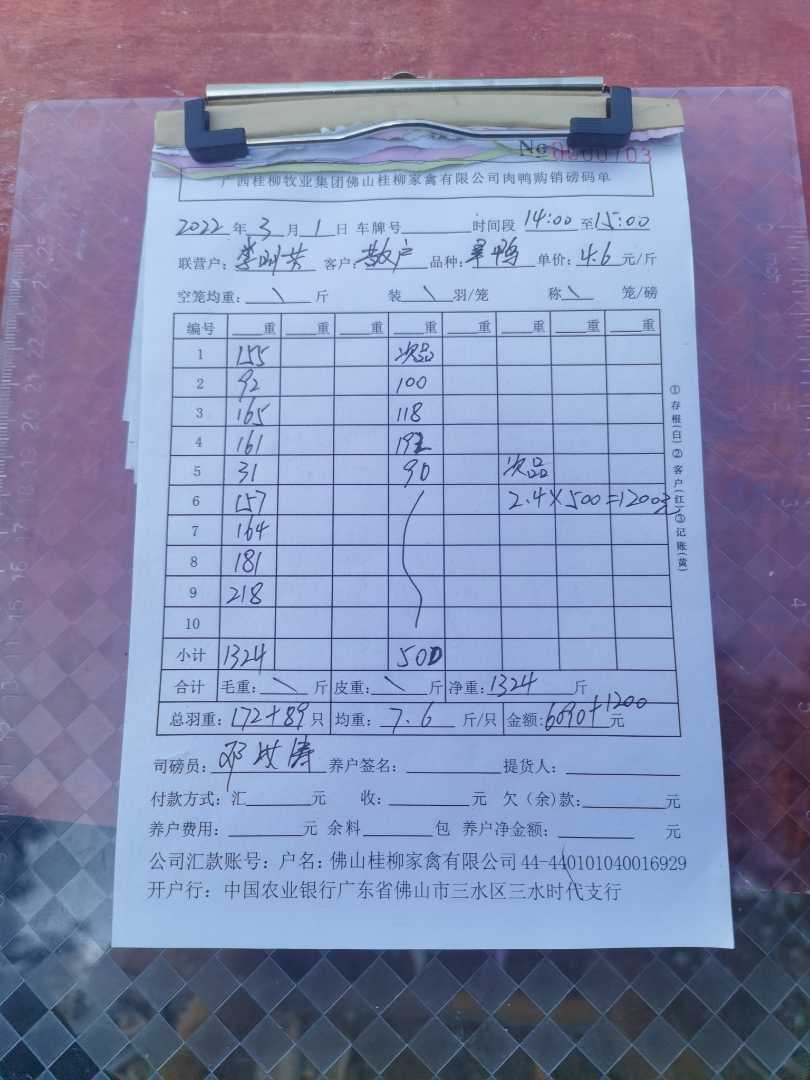 No 0000703
广西桂柳牧业集团佛山桂柳家禽有限公司肉鸭购销磅码单
2022 年 3 月 1 日 车牌号 时间段 14:00 至 15:00
联营户: 客户: 散户 品种: 单价: 4.6 元/斤
空笼均重: \ 斤 装 \ 羽/笼 称 \ 笼/磅
编号 重 重 重 重 重 重 重 重
1 155 次品
2 92 100
3 165 118
4 161 192
5 31 90 次品
6 157 2.4×500=1200元
7 164
8 181
9 218
10
小计 1324 500
合计 毛重: \ 斤 皮重: \ 斤 净重: 1324 斤
总羽重: 172+89 只 均重: 7.6 斤/只 金额: 6090+1200 元
司磅员: 养户签名: 提货人:
付款方式: 汇 元 收: 元 欠（余）款: 元
养户费用: 元 余料 包 养户净金额: 元
公司汇款账号: 户名: 佛山桂柳家禽有限公司 44-440101040016929
开户行: 中国农业银行广东省佛山市三水区三水时代支行
①存根(白)②客户(红)③记账(黄)